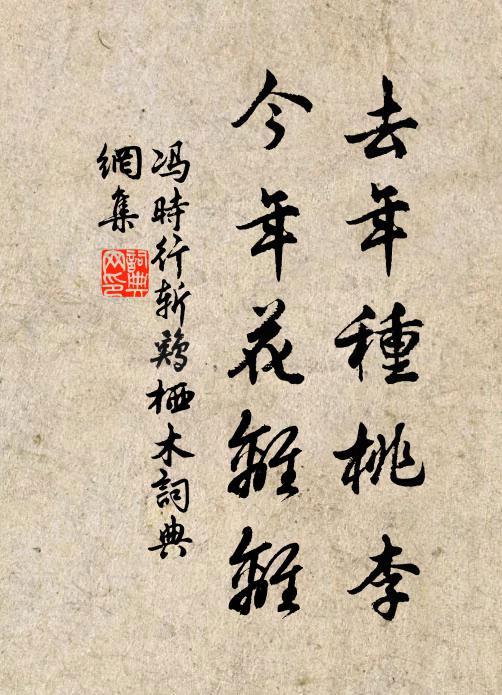 去年種桃李
今年花離離
冯時行斩鷄栖木詞典
網集
詞典網印